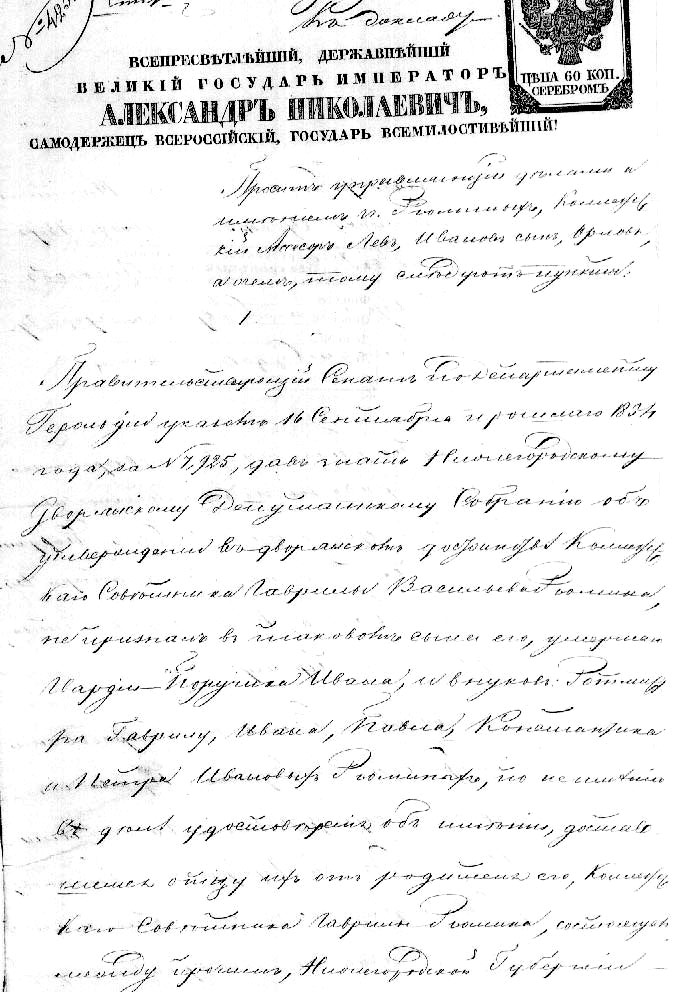 Къ докладу
ВСЕПРЕСВѢТЛѢЙШІЙ, ДЕРЖАВНѢЙШІЙ
ВЕЛИКІЙ ГОСУДАРЬ ИМПЕРАТОРЪ
АЛЕКСАНДРЪ НИКОЛАЕВИЧЪ,
САМОДЕРЖЕЦЪ ВСЕРОССІЙСКІЙ, ГОСУДАРЬ ВСЕМИЛОСТИВѢЙШІЙ!
ЦѢНА 60 КОП.
СЕРЕБРОМЪ
Проситъ управляющій дѣлами и
имѣніемъ г. Рюминыхъ, Коллеж
скій Левъ, Ивановъ сынъ, Орловъ,
а о чемъ, тому слѣдуютъ пункты.
1
Правительствующій Сенатъ по Департаменту
Герольдіи указомъ 16 Сентября прошлаго 1854
года, за № 7,925, давъ знать Нижегородскому
Дворянскому Депутатскому Собранію объ
утвержденіи въ дворянскомъ достоинствѣ Коллеж
скаго Совѣтника Гаврилы Васильева Рюмина,
не призналъ въ таковомъ сына его, умершаго
Гвардіи Поручика Ивана, и внуковъ: Ротмист
ра Гаврилу, Ивана, Павла, Константина
и Петра Ивановыхъ Рюминыхъ, по неимѣнію
въ дѣлѣ удостовѣренія объ имѣніи, достав
шемся отцу ихъ отъ родителя его, Коллеж
скаго Совѣтника Гаврилы Рюмина, состоящем
между прочимъ, Нижегородской Губерніи